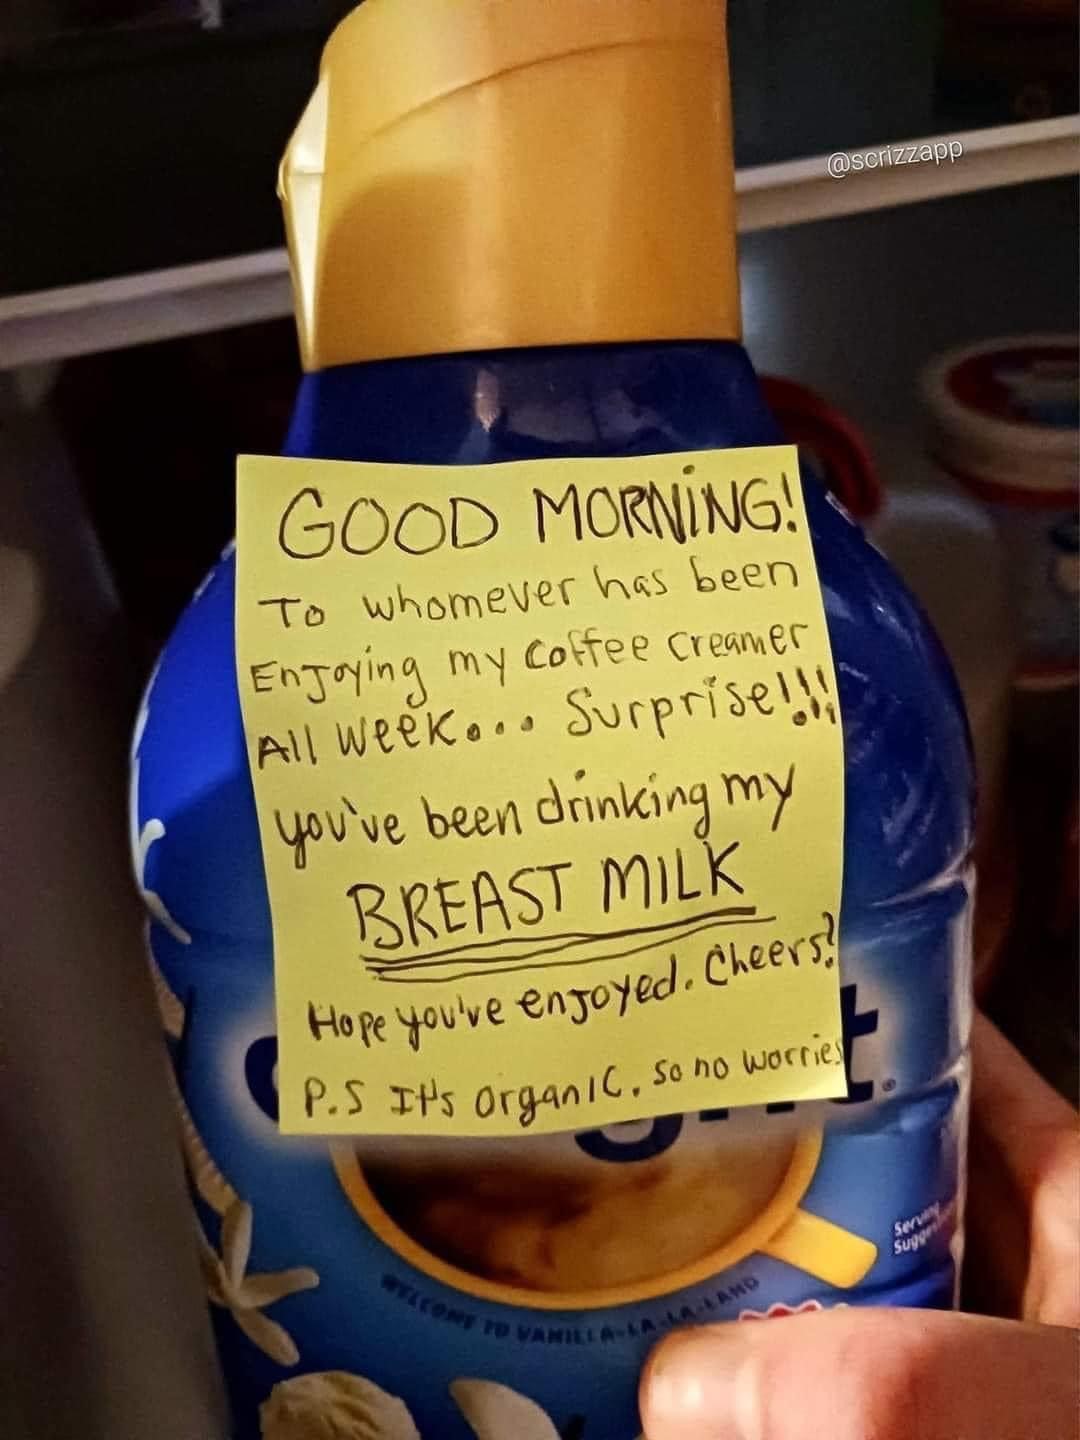 @scrizzapp
GOOD MORNING!
To whomever has been
Enjoying my coffee creamer
All week... Surprise!!!
you've been drinking my
BREAST MILK
Hope you've enjoyed. Cheers!
P.S It's organic. So no worries
Serving
WELCOME TO VANILLA-LA-LA-LAND